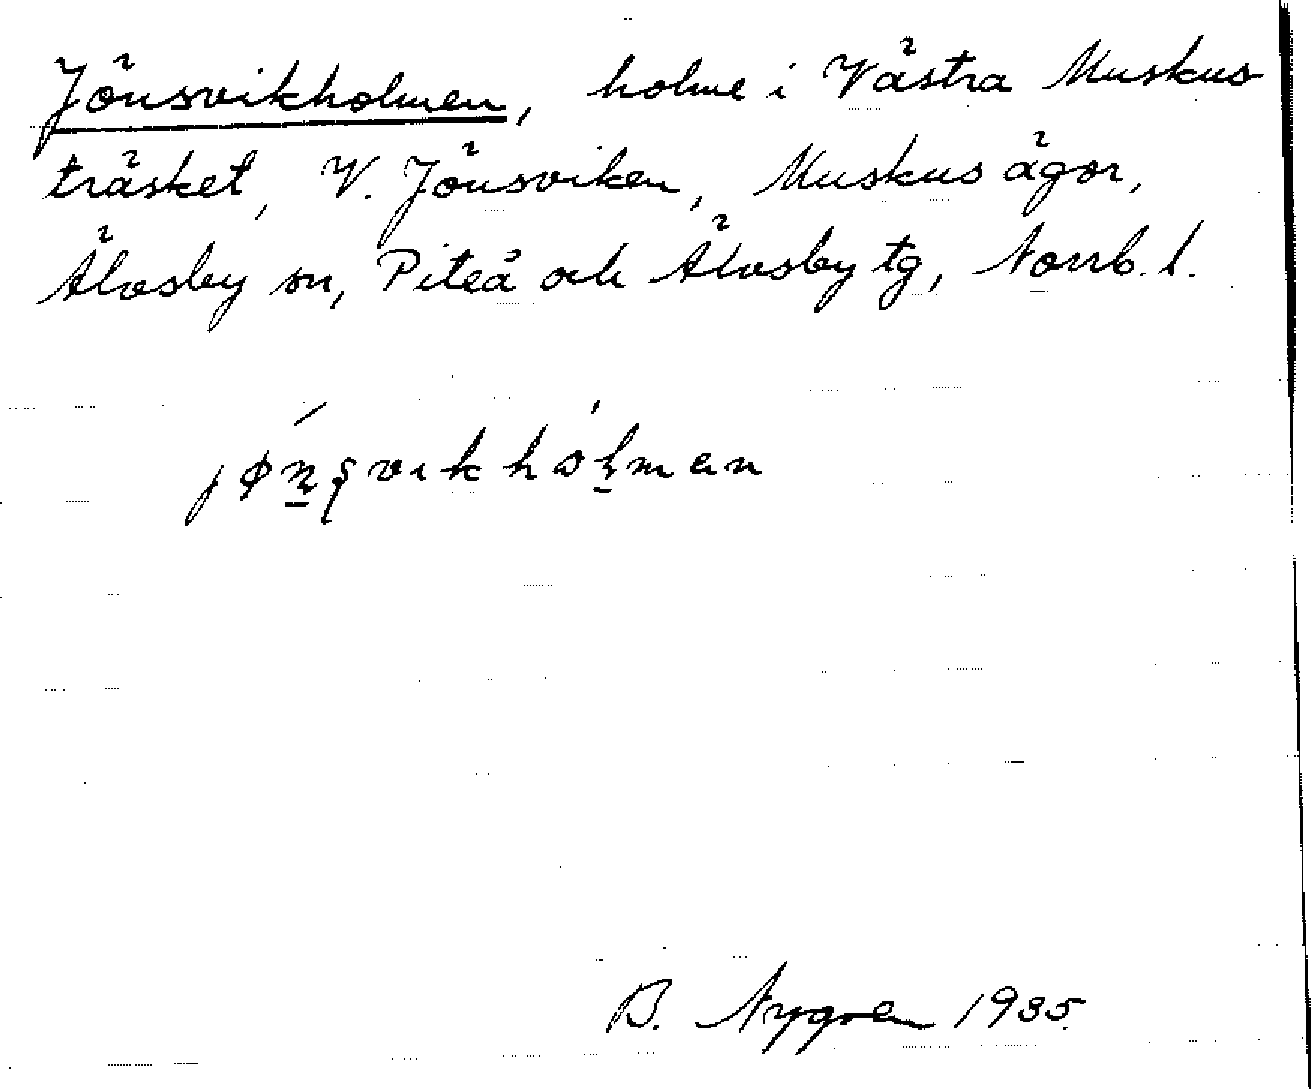 Jönsvikholmen, holme i Västra Muskus-
träsket, V. Jönsviken, Muskus ägor,
Älvsby sn, Piteå och Älvsby tg, Norrb. l.
B. Nygren 1935.